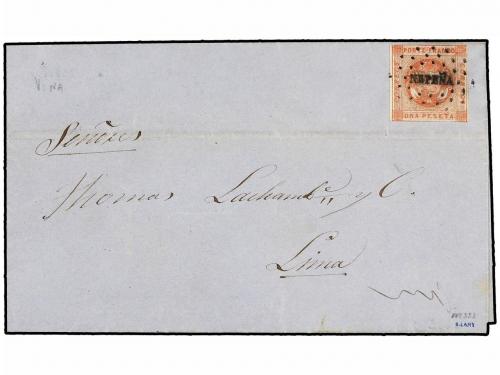 VIÑA
PORTE FRANCO
NEPEÑA
UNA PESETA
Señores
Thomas Lachambre y C.
Lima